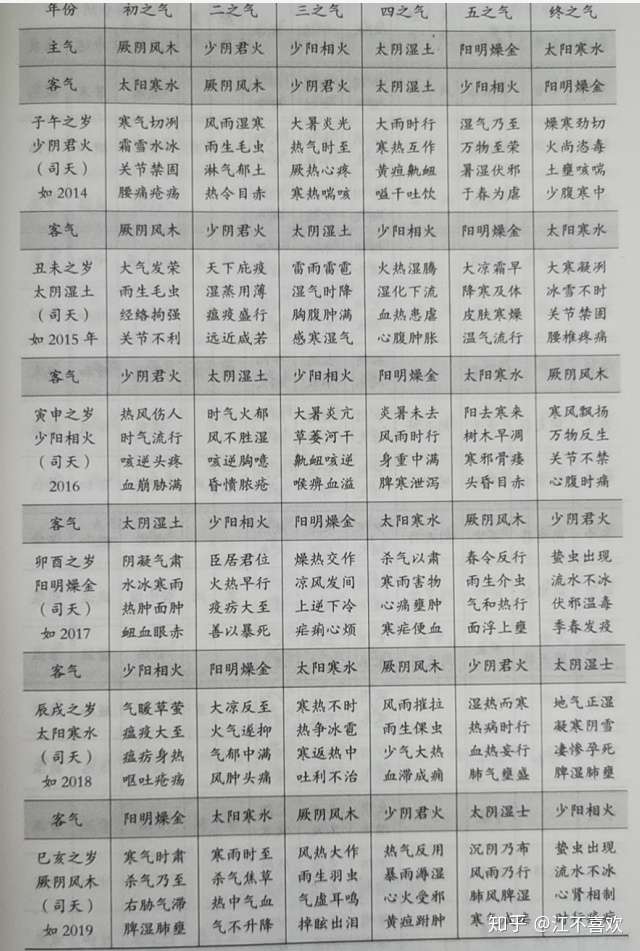 年份 初之气 二之气 三之气 四之气 五之气 终之气
主气 厥阴风木 少阴君火 少阳相火 太阴湿土 阳明燥金 太阳寒水
客气 太阳寒水 厥阴风木 少阴君火 太阴湿土 少阳相火 阳明燥金
子午之岁 寒气切冽 风雨湿寒 大暑炎光 大雨时行 湿气乃至 燥寒劲切
少阴君火 霜雪水冰 雨生毛虫 热气时至 寒热互作 万物至荣 火尚恣毒
（司天） 关节禁固 淋气郁土 厥热心疼 黄疸鼽衄 暑湿伏邪 土壅咳喘
如 2014 腰痛疮疡 热令目赤 寒热喘咳 嗌干吐饮 于春为虐 少腹寒中
客气 厥阴风木 少阴君火 太阴湿土 少阳相火 阳明燥金 太阳寒水
丑未之岁 大气发荣 天下疵疫 雷雨雷雹 火热湿腾 大凉霜早 大寒凝冽
太阴湿土 雨生毛虫 湿蒸用薄 湿气时降 湿化下流 降寒及体 冰雪不时
（司天） 经络拘强 瘟疫盛行 胸腹肿满 血热患虐 皮肤寒燥 关节禁固
如 2015 年 关节不利 远近咸若 感寒湿气 心腹肿胀 温气流行 腰椎疼痛
客气 少阴君火 太阴湿土 少阳相火 阳明燥金 太阳寒水 厥阴风木
寅申之岁 热风伤人 时气火郁 大暑炎亢 炎暑未去 阳去寒来 寒风飘扬
少阳相火 时气流行 风不胜湿 草萎河干 风雨时行 树木早凋 万物反生
（司天） 咳逆头疼 咳逆胸噫 鼽衄咳逆 身重中满 寒邪骨痿 关节不禁
2016 血崩胁满 昏愦脓疮 喉痹血溢 脾寒泄泻 头昏目赤 心腹时痛
客气 太阴湿土 少阳相火 阳明燥金 太阳寒水 厥阴风木 少阴君火
卯酉之岁 阴凝气肃 臣居君位 燥热交作 杀气以肃 春令反行 蛰虫出现
阳明燥金 水冰寒雨 火热早行 凉风发间 寒雨害物 雨生介虫 流水不冰
（司天） 热肿面肿 疫疠大至 上逆下冷 心痛壅肿 气和热行 伏邪温毒
如 2017 衄血眼赤 善以暴死 疟痢心烦 寒疟便血 面浮上壅 季春发疫
客气 少阳相火 阳明燥金 太阳寒水 厥阴风木 少阴君火 太阴湿士
辰戌之岁 气暖草萤 大凉反至 寒热不时 风雨摧拉 湿热而寒 地气正湿
太阳寒水 瘟疫大至 火气遂抑 热争冰雹 雨生倮虫 热病时行 凝寒阴雪
（司天） 瘟疠身热 气郁中满 寒返热中 少气大热 血热妄行 凄惨孕死
如 2018 呕吐疮疡 风肿头痛 吐利不治 血滞成痈 肺气壅盛 脾湿肺壅
客气 阳明燥金 太阳寒水 厥阴风木 少阴君火 太阴湿士 少阳相火
巳亥之岁 寒气时肃 寒雨时至 风热大作 热气反用 沉阴乃布 蛰虫出现
厥阴风木 杀气乃至 杀气焦草 雨生羽虫 暴雨溽湿 风雨乃行 流水不冰
（司天） 右胁气滞 热中气血 气虚耳鸣 心火受邪 肺风脾湿 心肾相制
如 2019 脾湿肺壅 气不升降 掉眩出泪 黄疸跗肿 寒气
知乎 @江不喜欢